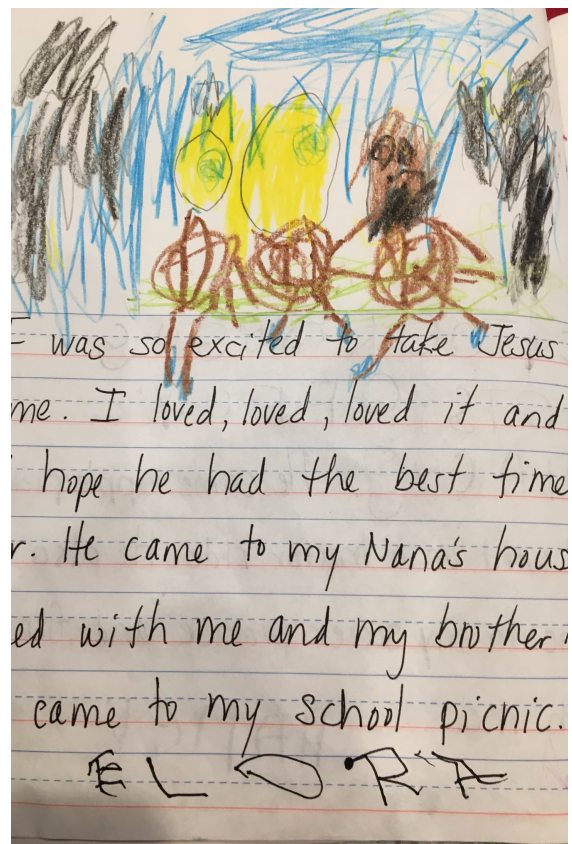 I was so excited to take Jesus
me. I loved, loved, loved it and
hope he had the best time
r. He came to my Nana's hous
ed with me and my brother
came to my school picnic.
ELORA